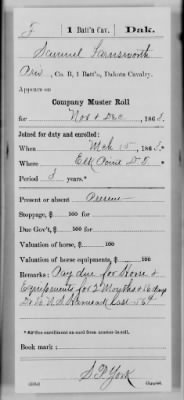 F | 1 Batt'n Cav. | Dak.
Samuel Farnsworth
Priv, Co. B, 1 Batt'n, Dakota Cavalry.
Appears on
Company Muster Roll
for Nov & Dec, 1863.
Joined for duty and enrolled:
When Mch 15, 1863.
Where Elk Point D.T.
Period 3 years.*
Present or absent
Stoppage, $ 100 for
Due Gov't, $ 100 for
Valuation of horse, $ 100
Valuation of horse equipments, $ 100
Remarks: Pay due for Horse &
Equipments for 2 Months & 16 days
*See enrollment on card from muster-in roll.
Book mark:
S P York
Copyist.